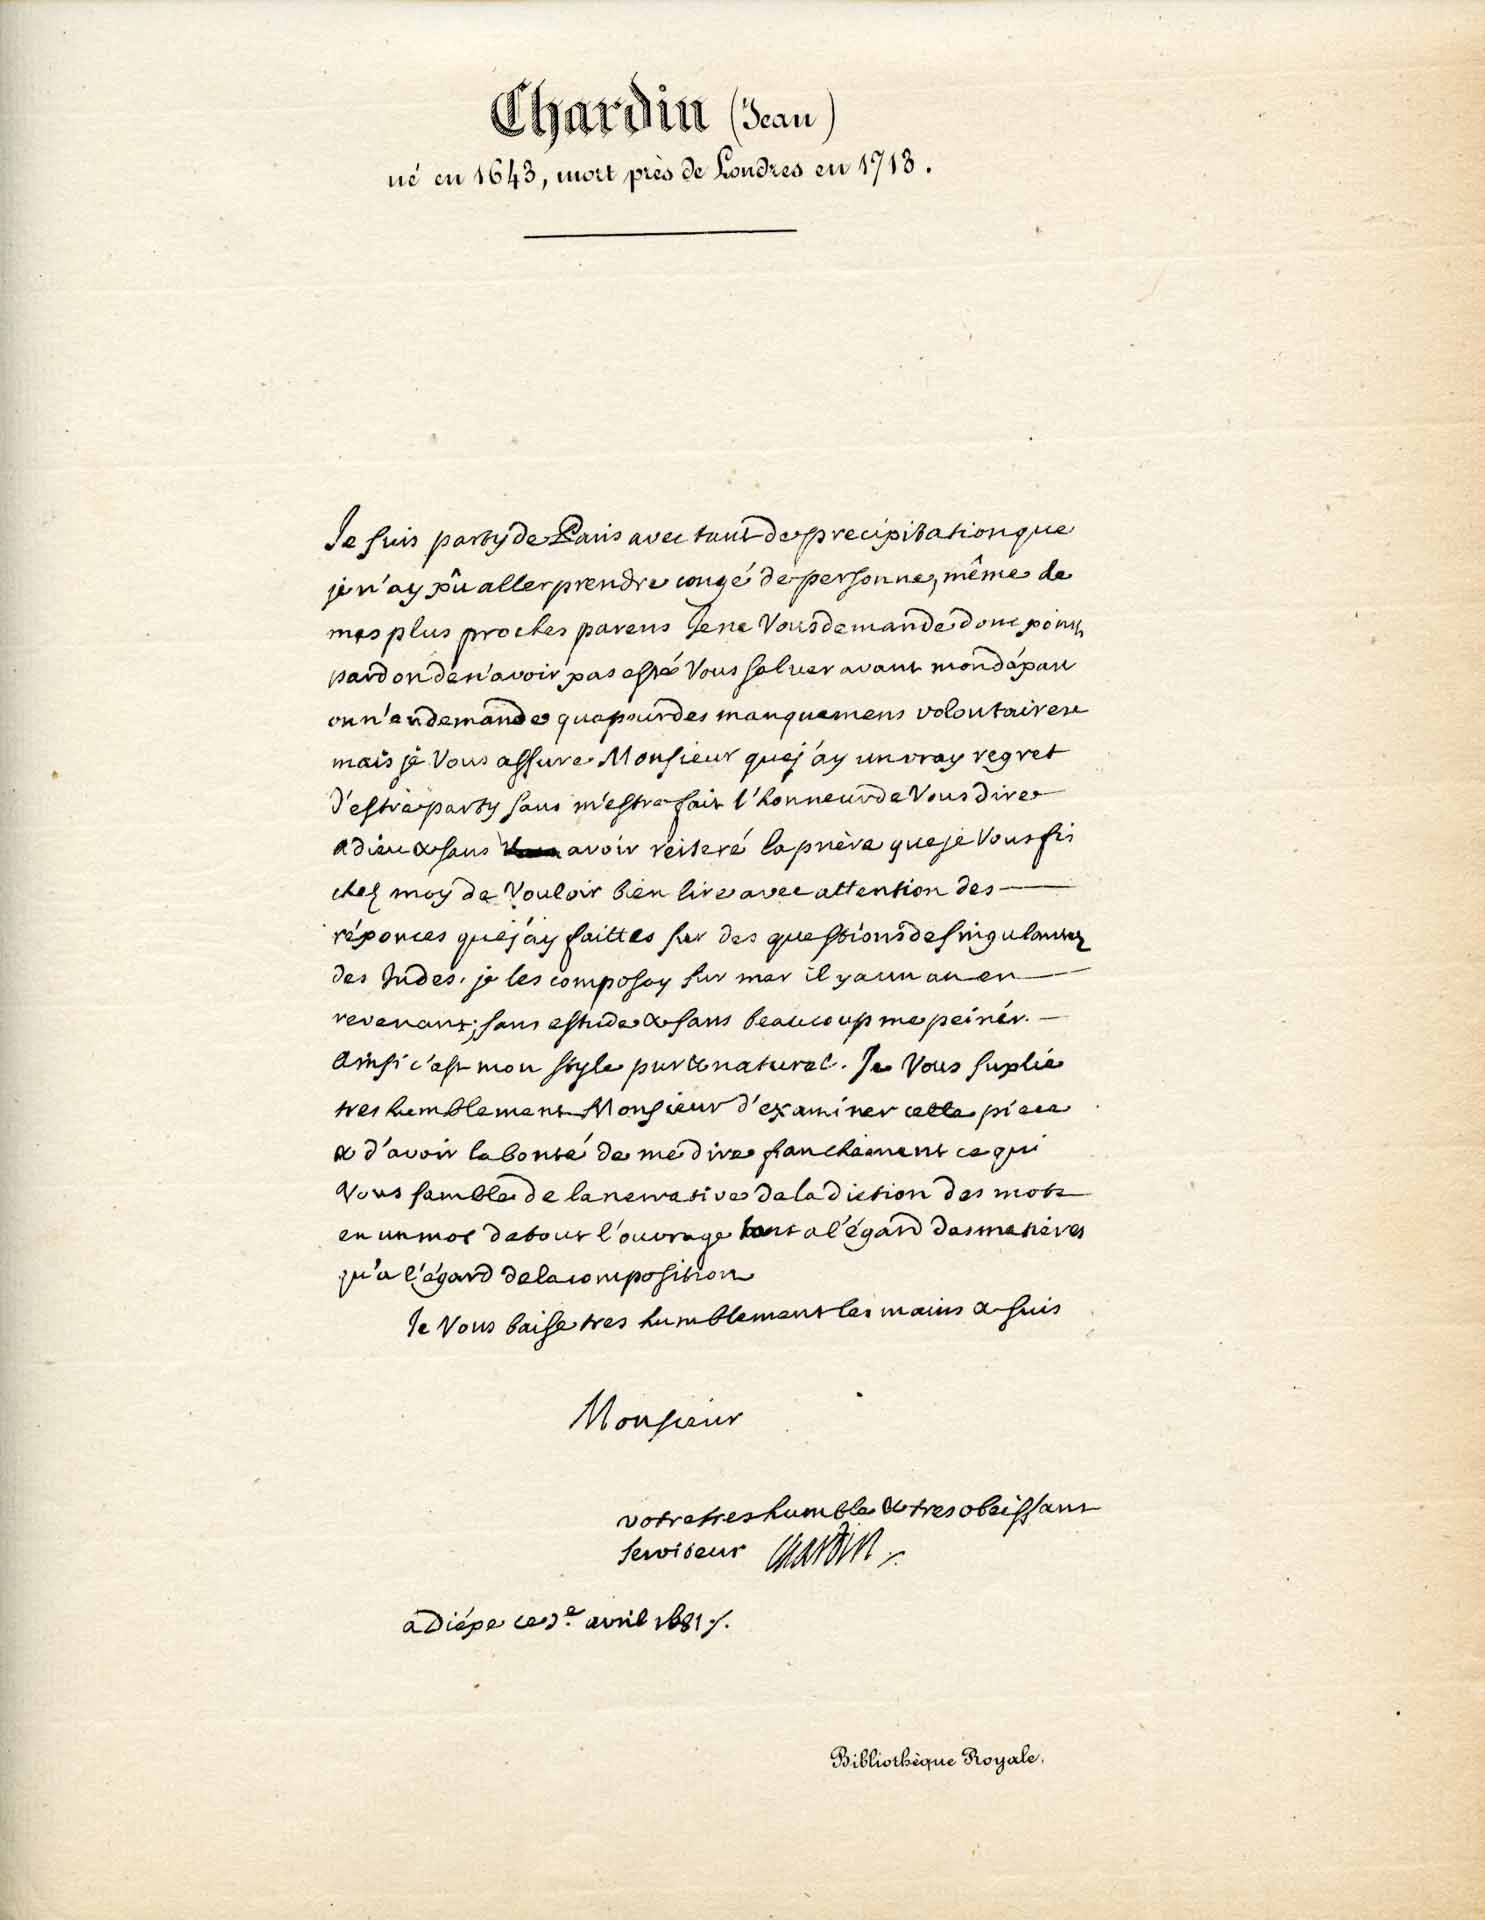 Chardin (Jean)
né en 1643, mort près de Londres en 1713.
Je suis party de Paris avec tant de precipitation que
je n'ay pû aller prendre congé de personne, même de
mes plus proches parens Je ne Vous demande donc point
pardon de n'avoir pas esté Vous saluer avant mon dépan
on n'en demande que pour des manquemens volontaires
mais je Vous assure Monsieur que j'ay un vray regret
d'estre party sans m'estre fait l'honneur de Vous dire
adieu & sans avoir reiteré la prière que je Vous fis
chez moy de Vouloir bien lire avec attention des
réponces que j'ay faittes sur des questions de singularitez
des Indes. je les composay sur mer il y a un an en
revenant; sans estude & sans beaucoup me peiner.
Ainsi c'est mon style pur & naturel. Je Vous suplie
tres humblement Monsieur d'examiner cette piece
& d'avoir la bonté de me dire franchement ce qui
Vous semble de la nerrative de la diction des mots
en un mot de tout l'ouvrage tant a l'égard des matières
qu'a l'égard de la composition
Je Vous baise tres humblement les mains & suis
Monsieur
votre tres humble & tres obeissant
serviteur Chardin
a Diépe ce avril 1681.
Bibliothèque Royale.